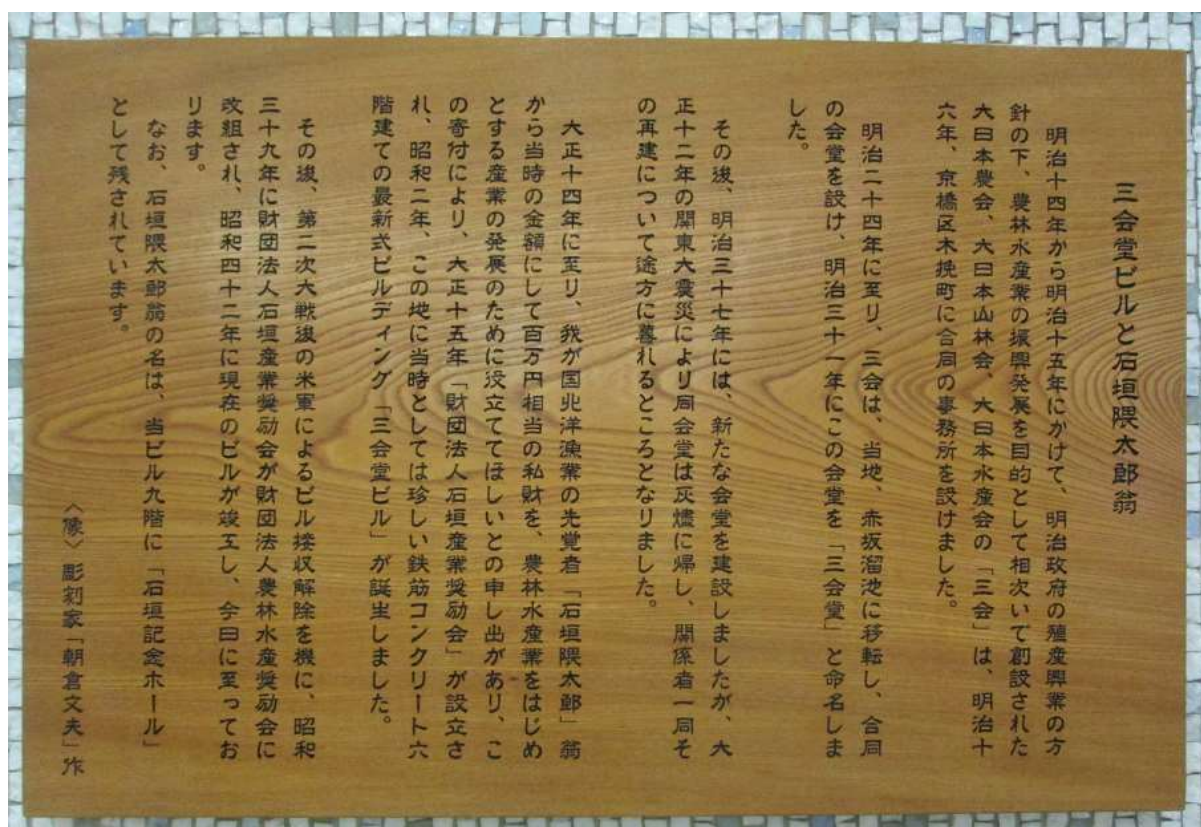 三会堂ビルと石垣隈太郎翁
明治十四年から明治十五年にかけて、明治政府の殖産興業の方
針の下、農林水産業の振興発展を目的として相次いで創設された
大日本農会、大日本山林会、大日本水産会の「三会」は、明治十
六年、京橋区木挽町に合同の事務所を設けました。
明治二十四年に至り、三会は、当地、赤坂溜池に移転し、合同
の会堂を設け、明治三十一年にこの会堂を「三会堂」と命名しま
した。
その後、明治三十七年には、新たな会堂を建設しましたが、大
正十二年の関東大震災により同会堂は灰燼に帰し、関係者一同そ
の再建について途方に暮れるところとなりました。
大正十四年に至り、我が国北洋漁業の先覚者「石垣隈太郎」翁
から当時の金額にして百万円相当の私財を、農林水産業をはじめ
とする産業の発展のために役立ててほしいとの申し出があり、こ
の寄付により、大正十五年「財団法人石垣産業奨励会」が設立さ
れ、昭和二年、この地に当時としては珍しい鉄筋コンクリート六
階建ての最新式ビルディング「三会堂ビル」が誕生しました。
その後、第二次大戦後の米軍によるビル接収解除を機に、昭和
三十九年に財団法人石垣産業奨励会が財団法人農林水産奨励会に
改組され、昭和四十二年に現在のビルが竣工し、今日に至ってお
ります。
なお、石垣隈太郎翁の名は、当ビル九階に「石垣記念ホール」
として残されています。
〈像〉彫刻家「朝倉文夫」作